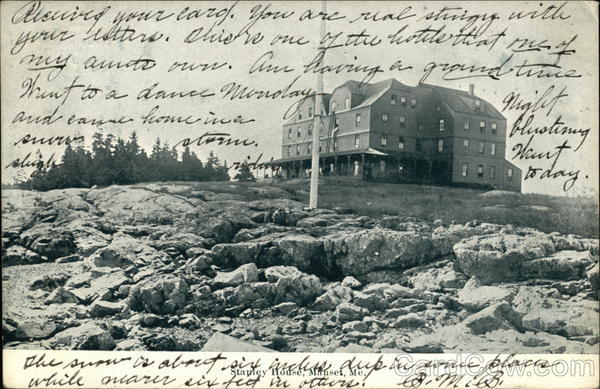 Received your card. You are real stringy with
your letters. This is one of the hotels that one of
my aunts own. Am having a grand time
Went to a dance Monday Night
and came home in a blustering
snow storm. Went
sleigh riding to day.
Stanley House, Manset, Me.
The snow is about six inches deep in some places
while nearer six feet in others.
CardCow.com